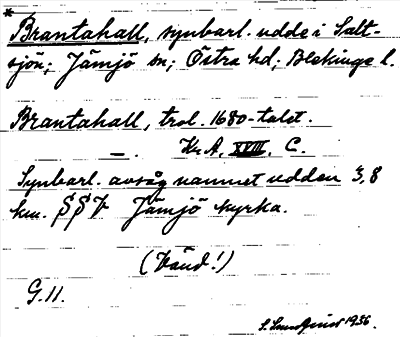 * Brantahall, synbarl. udde i Salt-
sjön; Jämjö sn; Östra hd; Blekinge l.
Brantahall, trol. 1680-talet.
—. Kr.A. XVIII. C.
Synbarl. avsåg namnet udden 3,8
km. SSV Jämjö kyrka.
(Vänd!)
G.11.
1936.